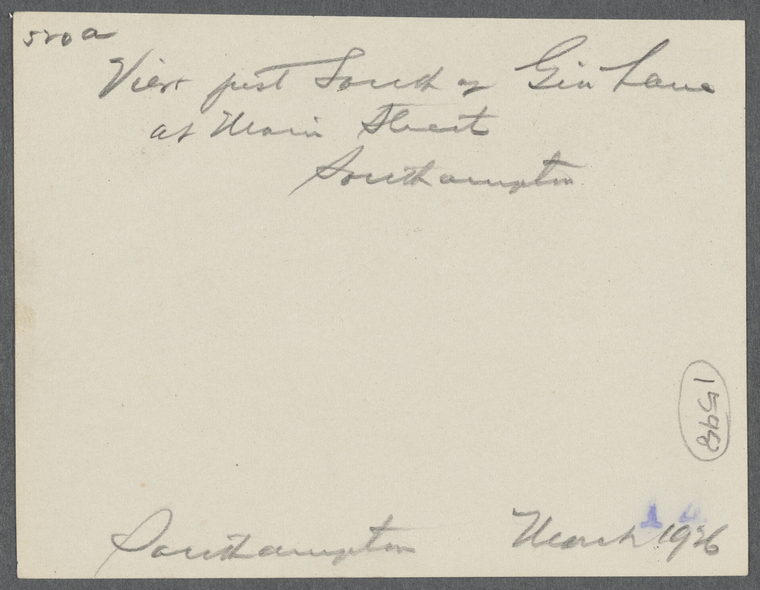 520a
View just South of Gin Lane
at Main Street
Southampton
1598
Southampton March 1926